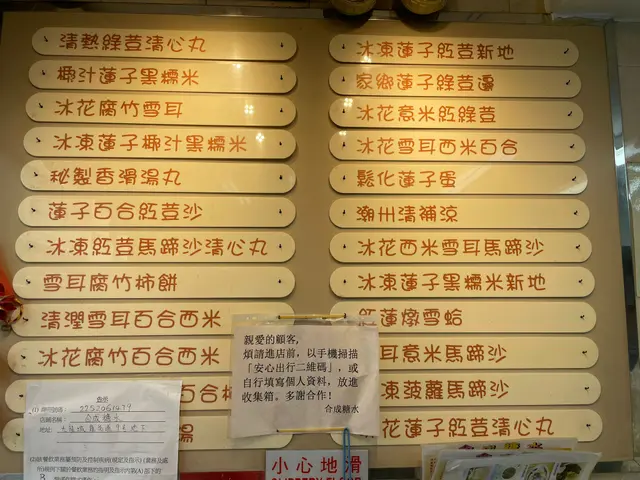 清熱綠荳清心丸
椰汁蓮子黑糯米
冰花腐竹雪耳
冰凍蓮子椰汁黑糯米
秘製香滑湯丸
蓮子百合紅荳沙
冰凍紅荳馬蹄沙清心丸
雪耳腐竹柿餅
清潤雪耳百合西米
冰花腐竹百合西米
百合
湯
冰凍蓮子紅荳新地
家鄉蓮子綠荳邊
冰花意米紅綠荳
冰花雪耳西米百合
鬆化蓮子蛋
潮州清補涼
冰花西米雪耳馬蹄沙
冰凍蓮子黑糯米新地
紅蓮燉雪蛤
耳意米馬蹄沙
凍菠蘿馬蹄沙
花蓮子荳清心丸
親愛的顧客,
煩請進店前，以手機掃描
「安心出行二維碼」，或
自行填寫個人資料，放進
收集箱。多謝合作！
合成糖水
店舖名稱： 合成糖水
地址：
小心地滑